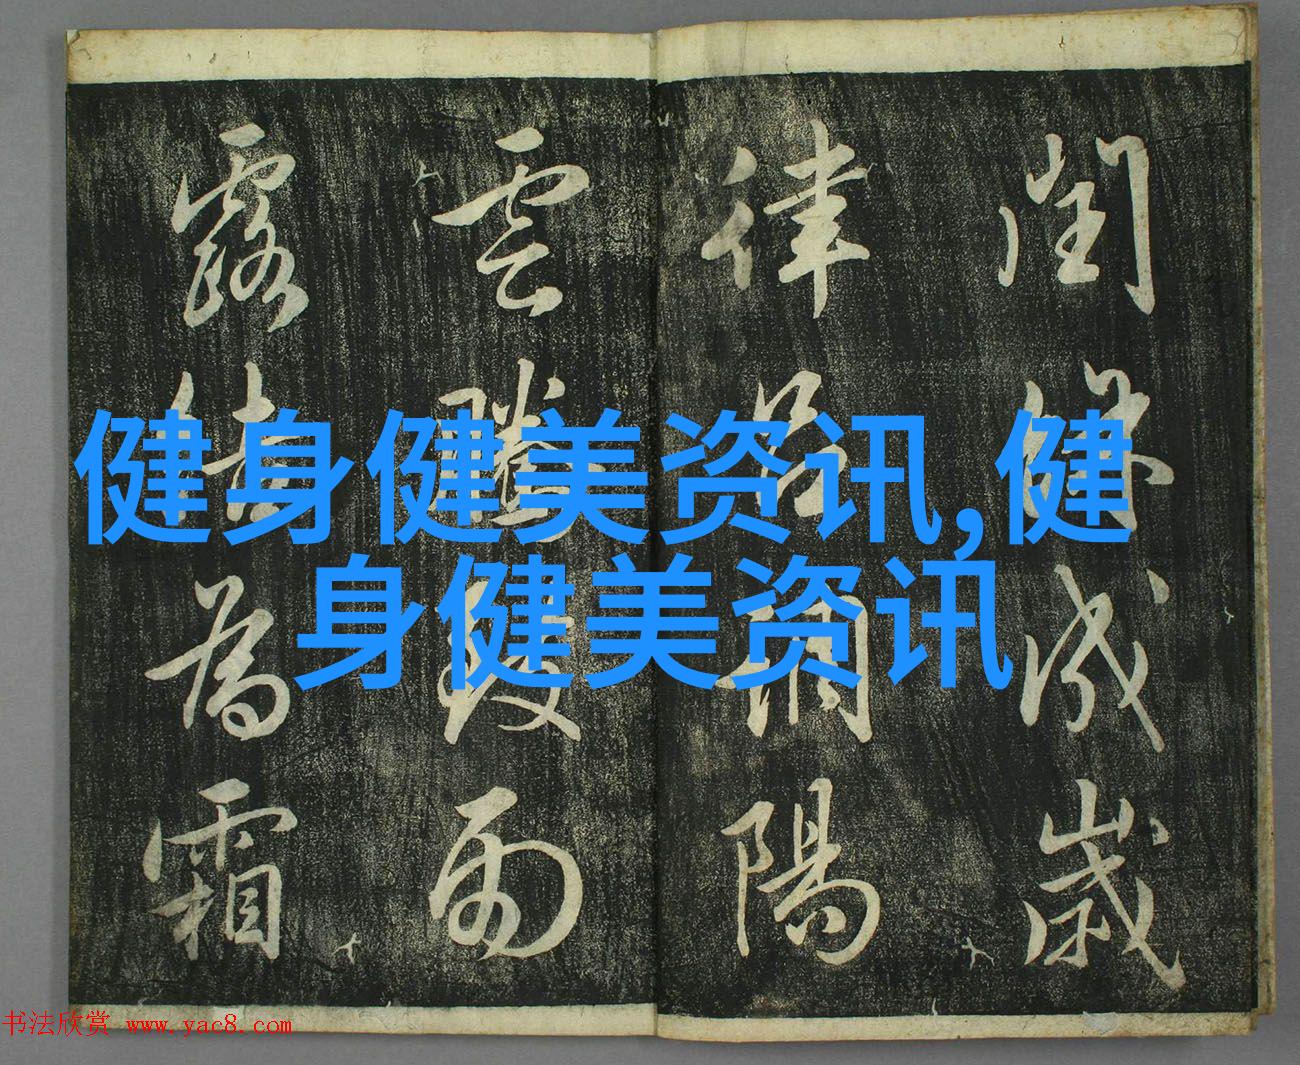 閏餘成歲
律呂調陽
雲騰致雨
露結為霜
健身健美资讯,健
身健美资讯
书法欣赏 www.yac8.com